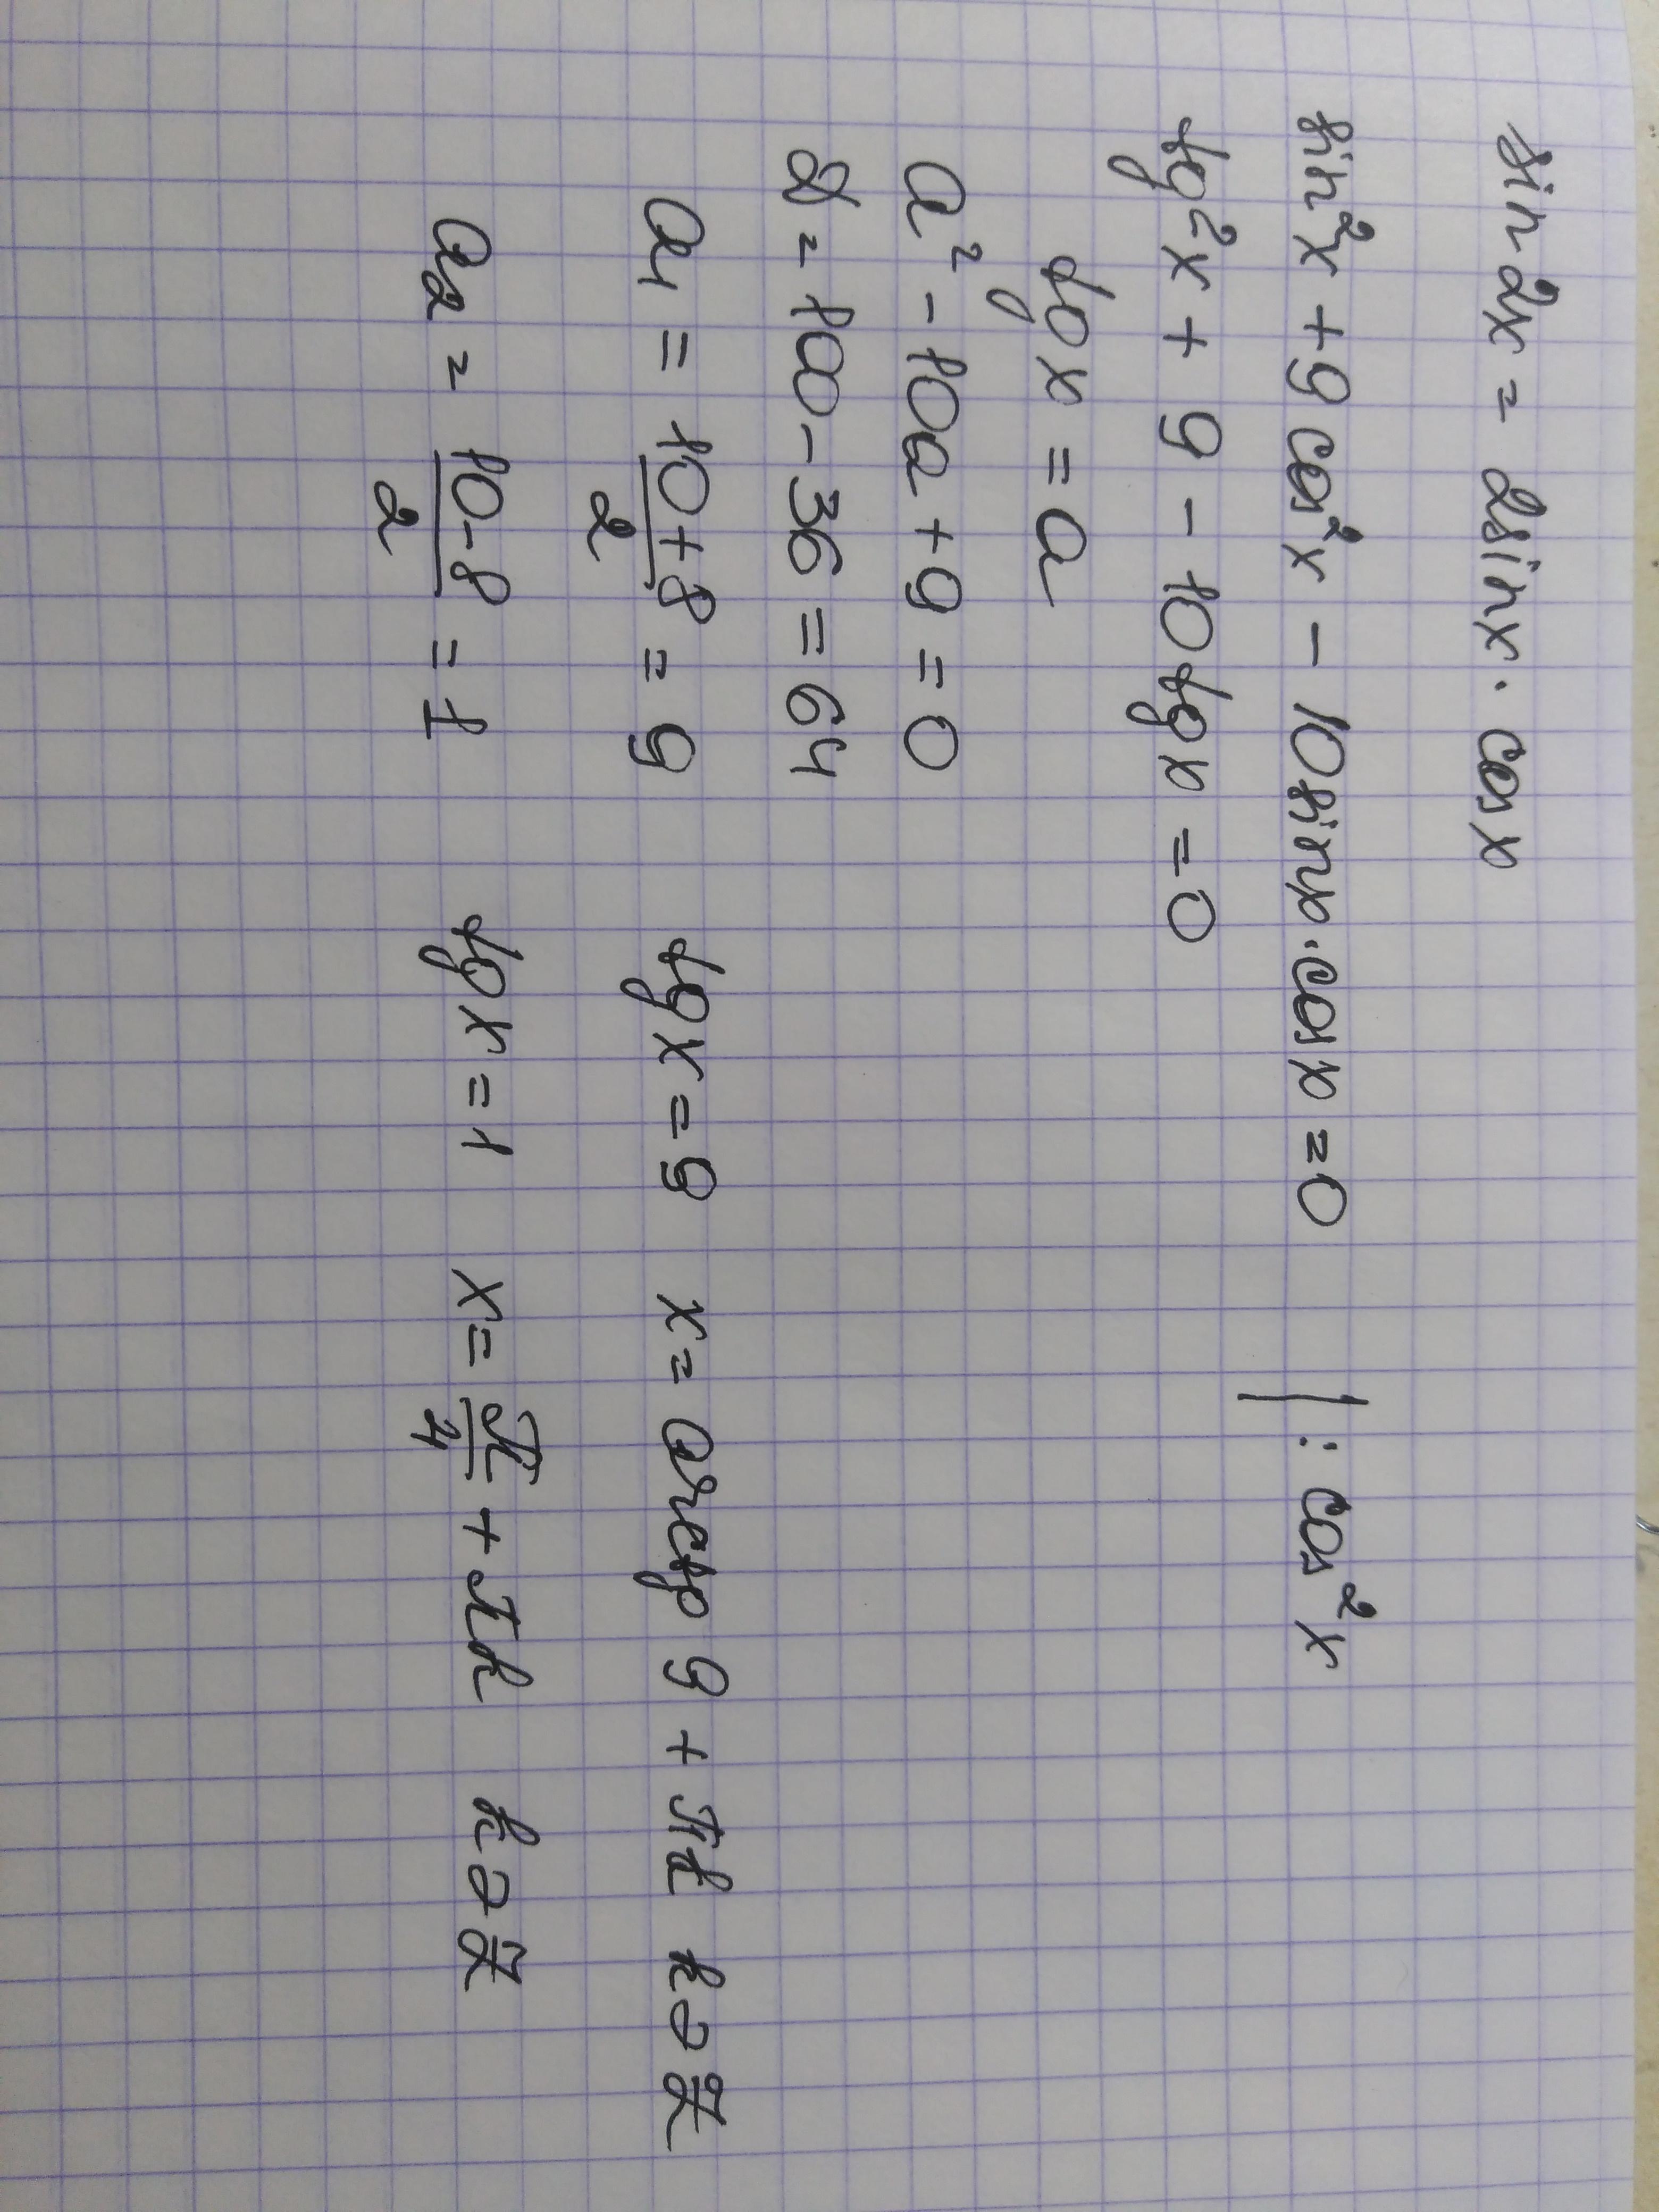 sin 2x = 2sinx · cosx
sin²x + 9cos²x - 10sinx · cosx = 0 | : cos²x
tg²x + 9 - 10tgx = 0
tgx = a
a² - 10a + 9 = 0
D = 100 - 36 = 64
a₁ = (10+8)/2 = 9 tgx = 9 x = arctg 9 + πk k∈Z
a₂ = (10-8)/2 = 1 tgx = 1 x = π/4 + πk k∈Z